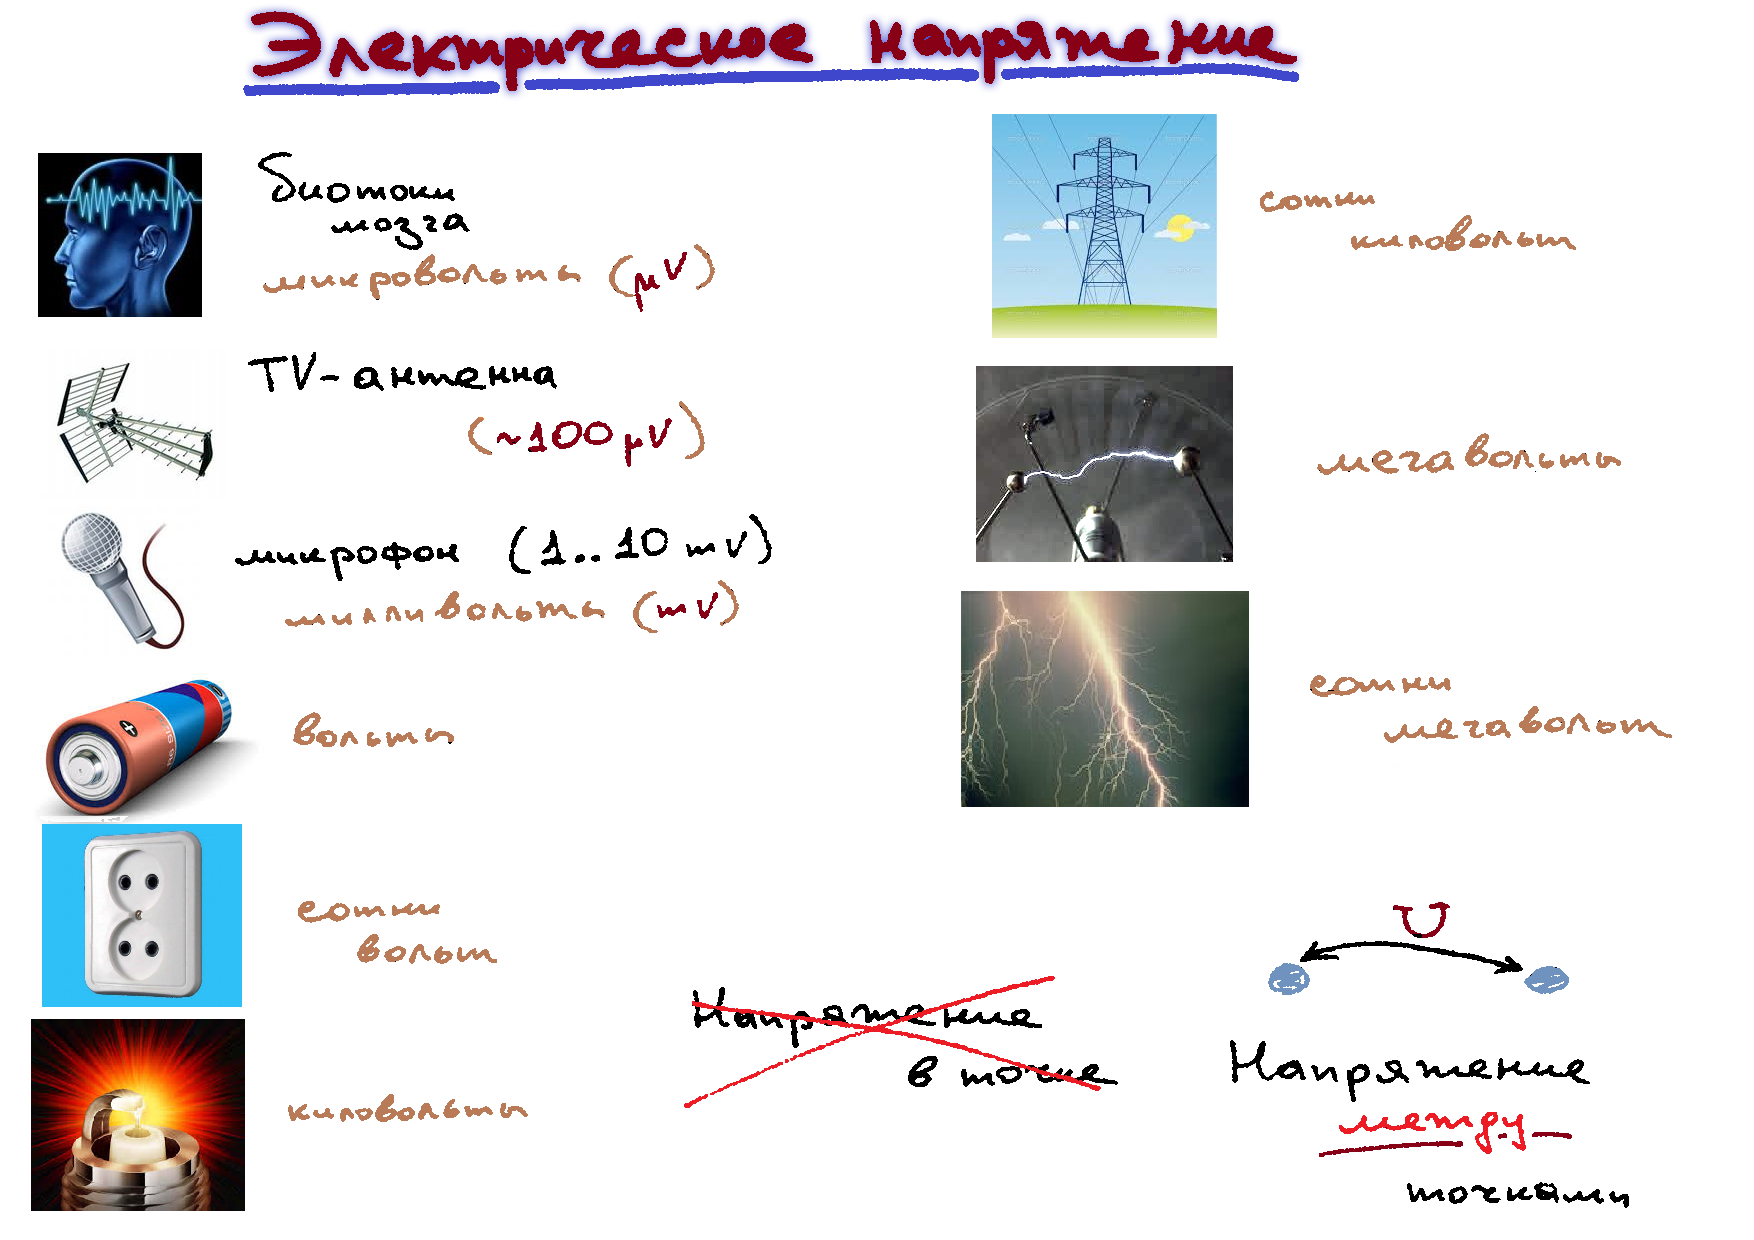 Электрическое напряжение
биотоки
мозга
микровольты (μV)
TV-антенна
(~100μV)
микрофон (1..10 mV)
милливольты (mV)
вольты
сотни
вольт
киловольты
сотни
киловольт
мегавольты
сотни
мегавольт
Напряжение
в точке
U
Напряжение
между
точками